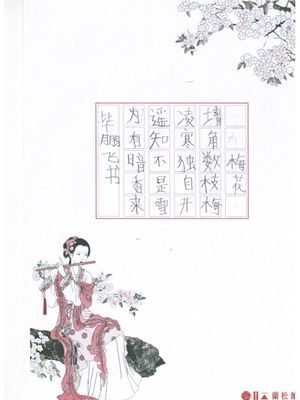 梅花
墙角数枝梅
凌寒独自开
遥知不是雪
为有暗香来
毕鹏飞书
蘭松